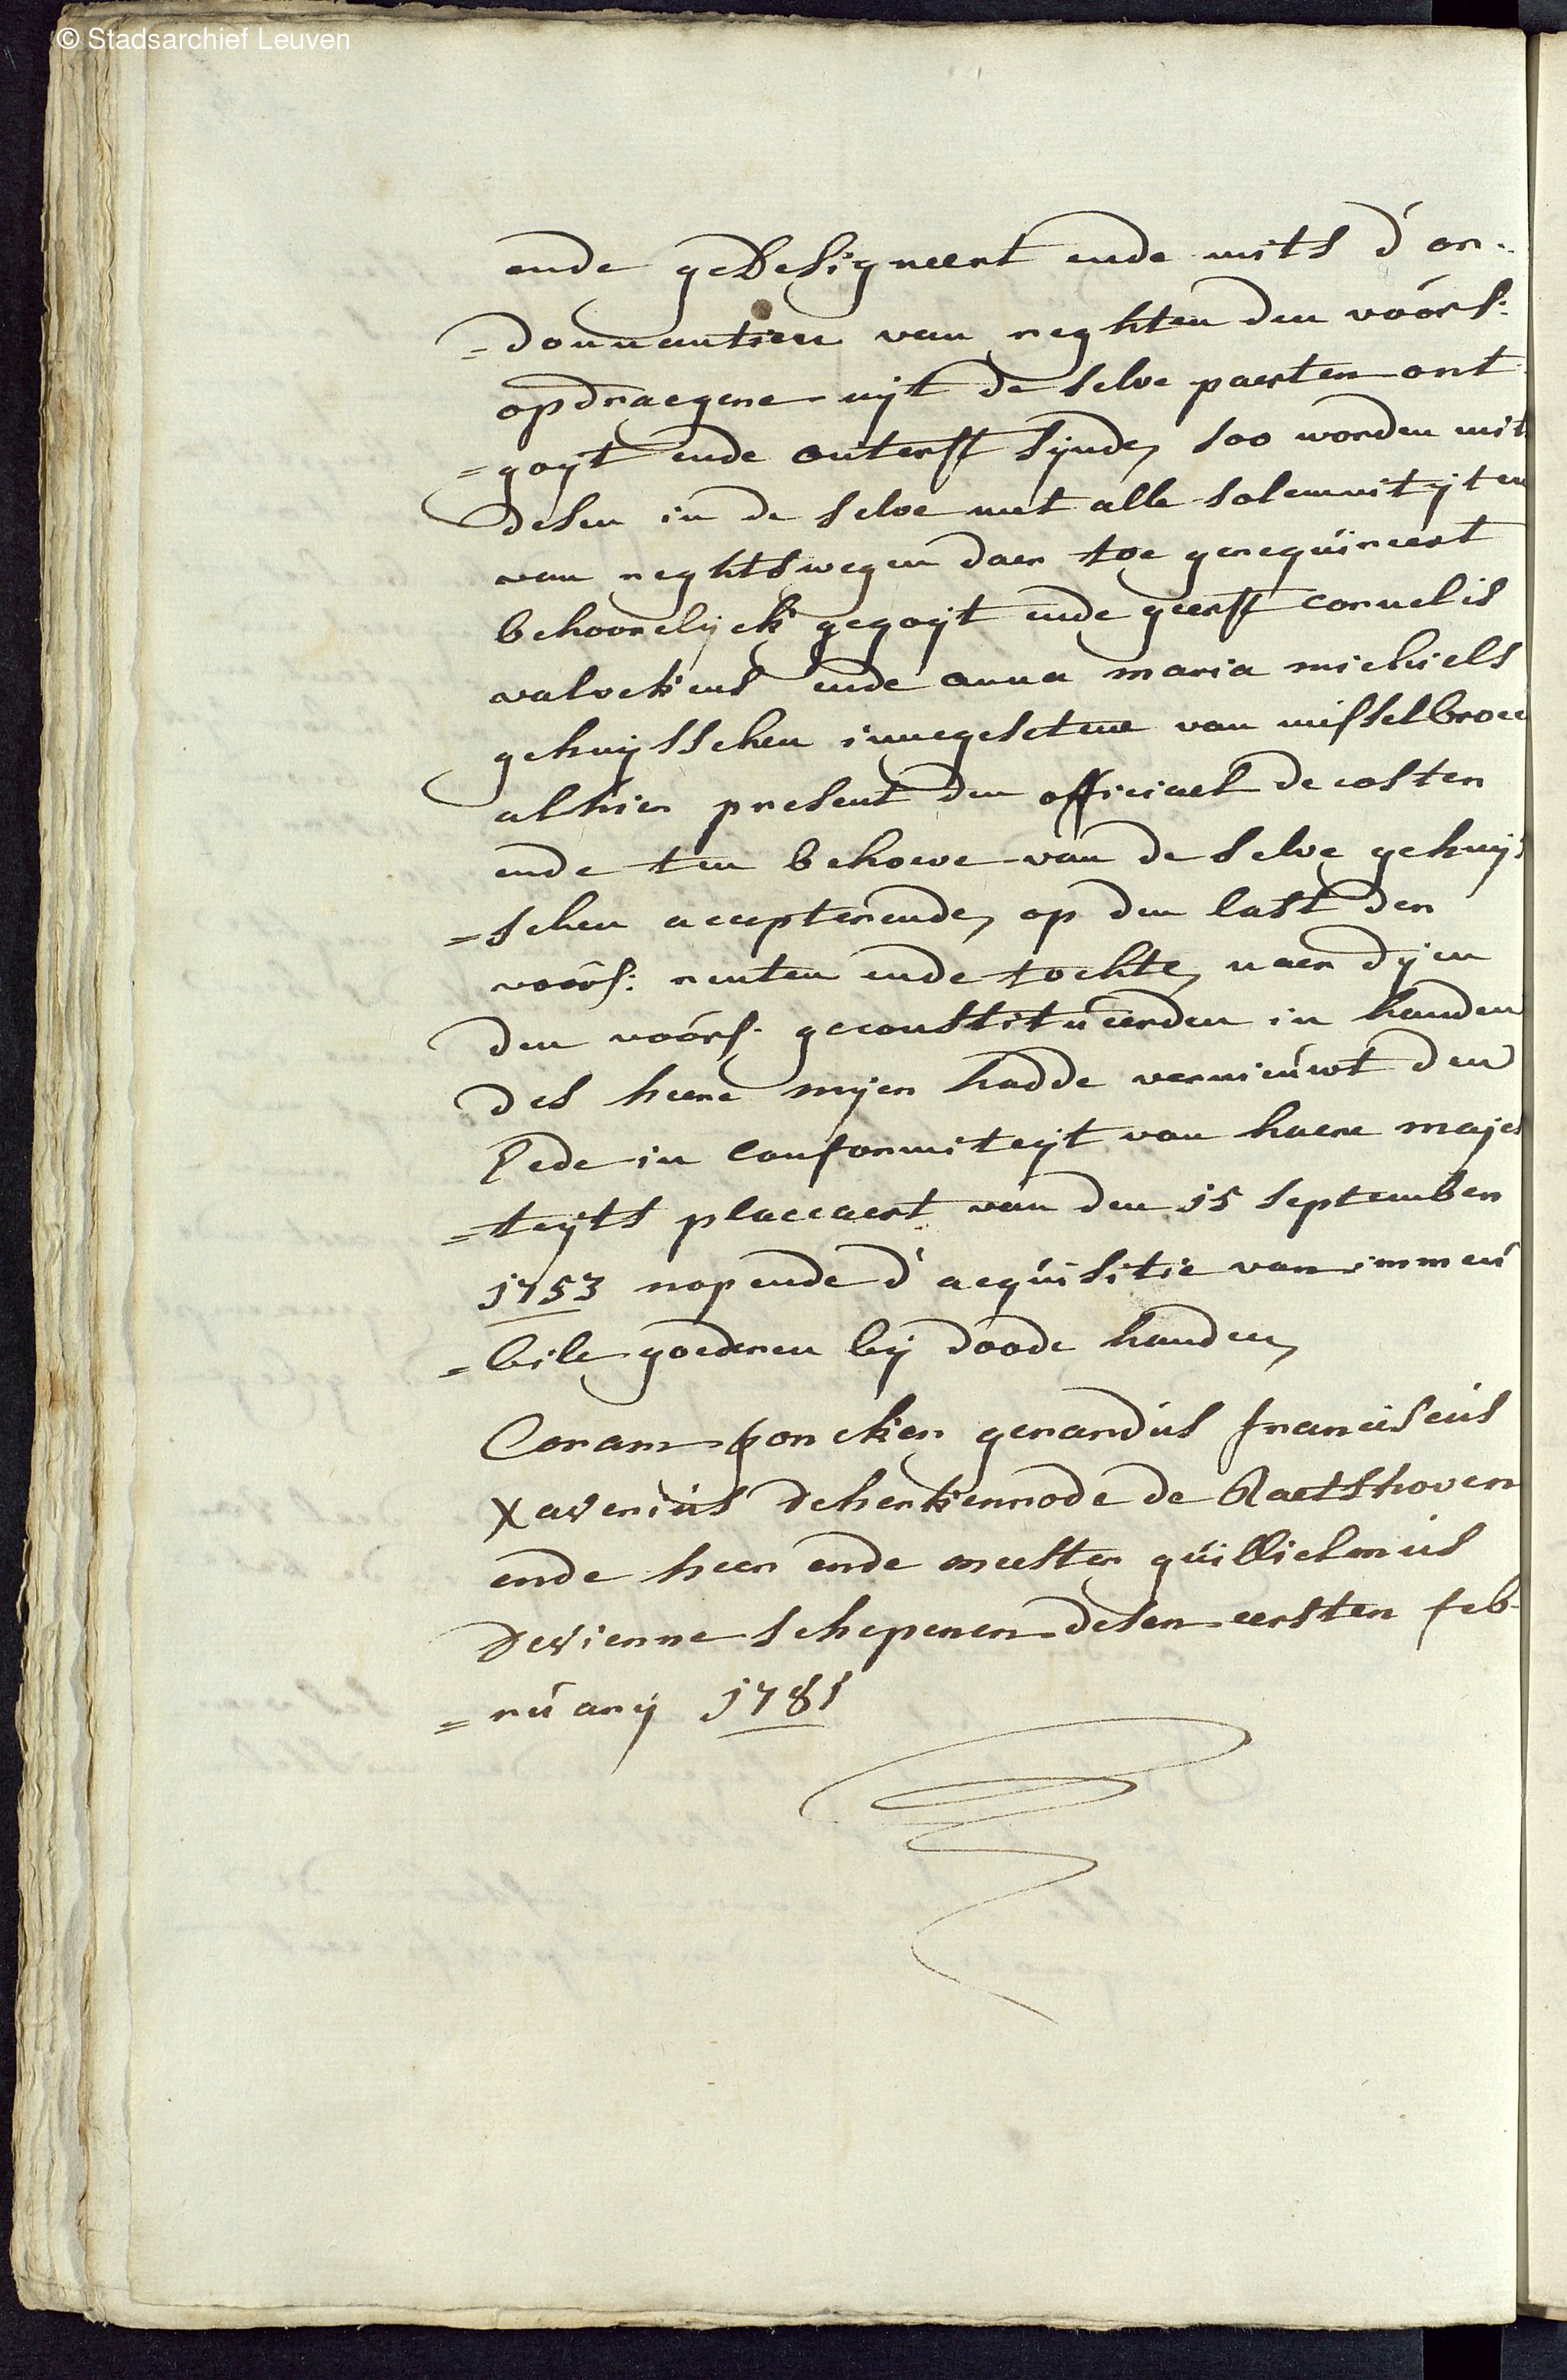 © Stadsarchief Leuven
ende gedesigneert ende mits d'or-
=donnantien van reghten den voórs:
opdraegene uijt de selve paerten ont
=goijt ende onterft sijnde, soo worden mits
desen in de selve met alle solemnitijten
van reghtswegen daer toe gerequireert
behoorelijck gegoijt ende geerft cornelis
valvekens ende anna maria michiels
gehuijsschen innegesetene van misselbroeck
alhier present den officiael de coster
ende ten behoeve van de selve gehuijs
=schen accepterende, op den last der
voórs: renten ende tochte, naer dijen
den voórs. geconstitueerden in handen
des heere mijer hadde vernieúwt den
Eede in conformiteijt van haere majes
=teijts placcaert van den 15 september
1753 nopende d'acqúisitie van immeú
=bile goederen bij doode handen,
Coram joncker gerardús franciscús
Xaveriús deherkenrode de Raetshoven
ende heer ende meester gúillielmús
devienne schepenen desen eersten feb-
=rúarij 1781